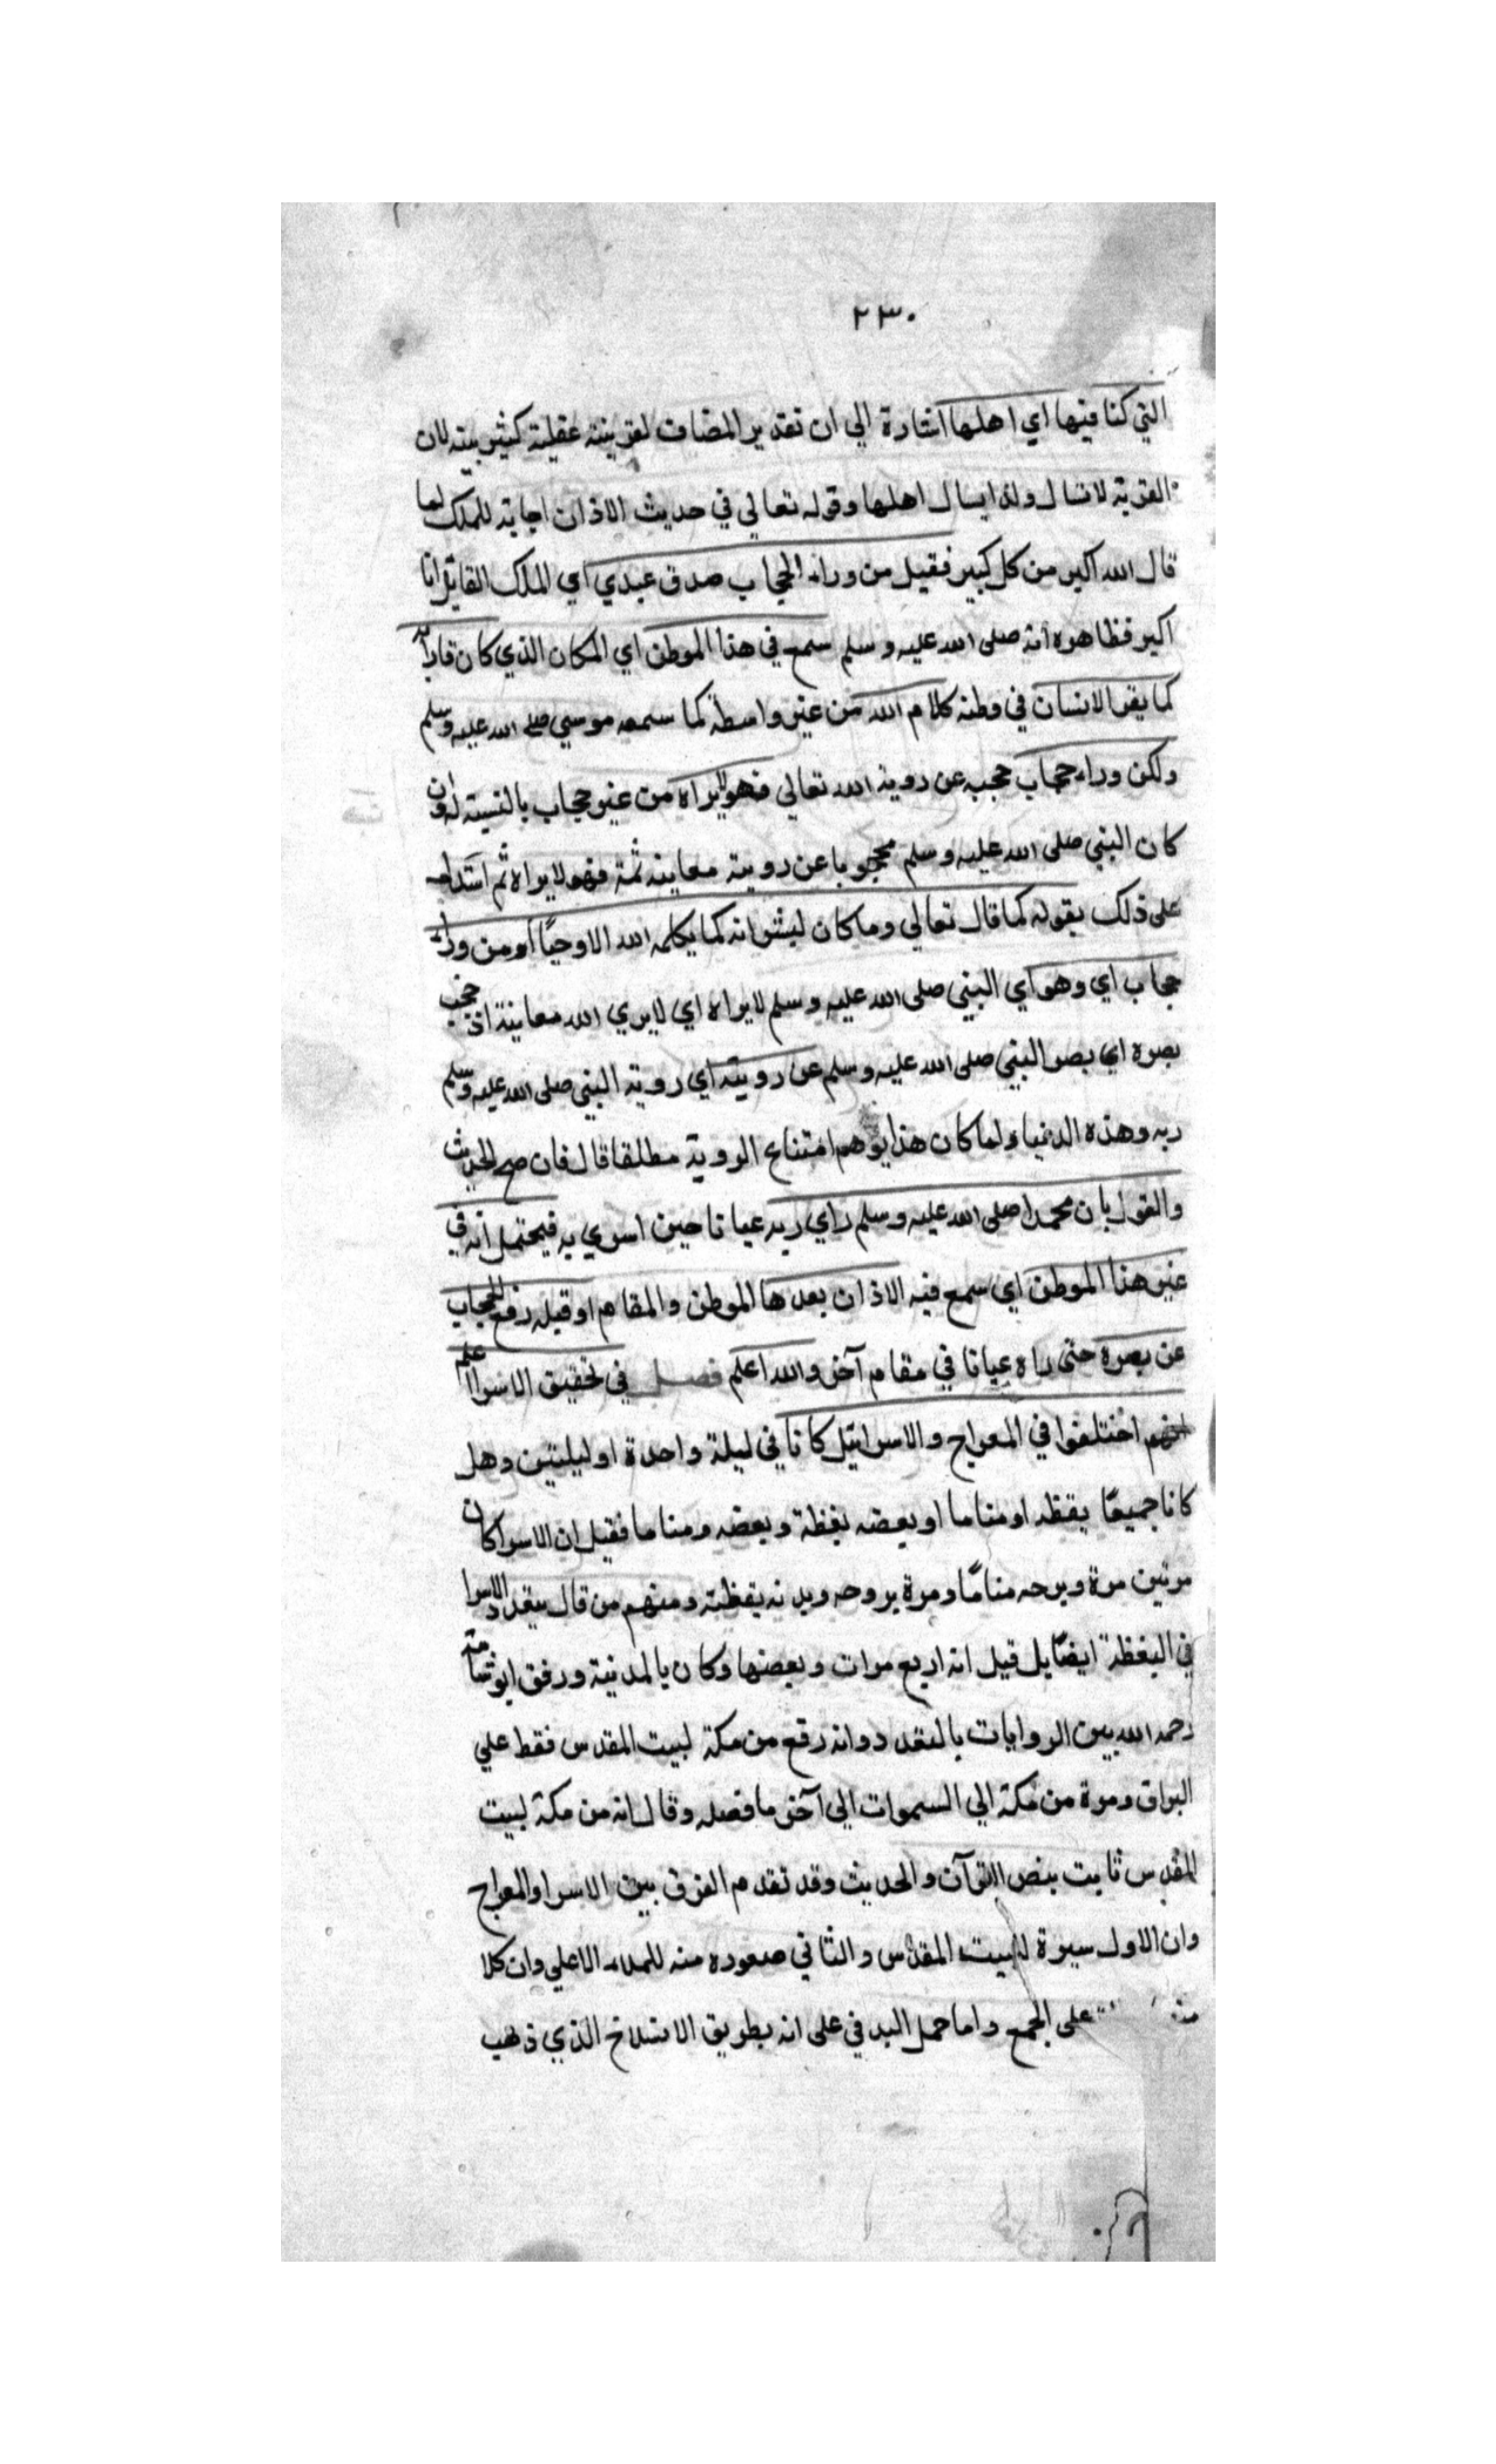 ٢٣٠
التي كنا فيها اي اهلها اشارة الي ان تقدير المضاف لقرينة عقلية كثير بينه لان
القرية لا تسال ولذا يسال اهلها وقوله تعالي في حديث الاذان اجابة للملك لما
قال الله اكبر من كل كبير فقيل من وراء الحجاب صدق عبدي اي الملك القائل انا
اكبر فظاهره انه صلى الله عليه وسلم سمع في هذا الموطن اي المكان الذي كان قارا به
كما يقر الانسان في وطنه كلام الله من غير واسطة كما سمعه موسي صلى الله عليه وسلم
ولكن وراء حجاب حجبه عن روية الله تعالي فهو لا يراه من غير حجاب بالنسبة له وان
كان النبي صلى الله عليه وسلم محجوبا عن روية معاينة ثمة فهو لا يراه ثم استدل
على ذلك بقوله كما قال تعالي وما كان لبشر انه كما يكلمه الله الا وحيًا او من وراء
حجاب اي وهو اي النبي صلى الله عليه وسلم لا يراه اي لا يري الله معاينة اذ حجب
بصره اي بصر النبي صلى الله عليه وسلم عن رويته اي روية النبي صلى الله عليه وسلم
ربه وهذه الدنيا ولما كان هذا يوهم امتناع الروية مطلقا قال فان صح الحديث
والقول بان محمدا صلى الله عليه وسلم راي ربه عيانا حين اسري به فيحتمل انه في
غير هذا الموطن اي سمع فيه الاذان بعد ها الموطن والمقام او قبله رفع الحجاب
عن بصره حتى راه عيانا في مقام آخر والله اعلم فصل في تحقيق الاسرا اعلم
انهم اختلفوا في المعراج والاسرا ايل كانا في ليلة واحدة او ليلتين وهل
كانا جميعًا يقظه او مناما او بعضه يقظة وبعضه ومناما فقيل ان الاسرا كان
مرتين مرة وبرحه منامًا ومرة بروحه وبدنه يقظة ومنهم من قال بتعدد الاسرا
في اليقظة ايضًا بل قيل انه اربع مرات وبعضها وكان بالمدنية ورفق ابو شامة
رحمه الله بين الروايات بالتعدد وانه رقع من مكة لبيت المقدس فقط علي
البراق ومرة من مكة الي السموات الي آخر ما فصله وقال انه من مكة لبيت
المقدس ثابت بنص القرآن والحديث وقد تقدم الفرق بين الاسرا والمعراج
وان الاول سيرة لبيت المقدس والثاني صعوده منه للملاء الاعلي وان كلا
على الجمع واما حمل البد في على انه بطريق الانسلاخ الذي ذهب